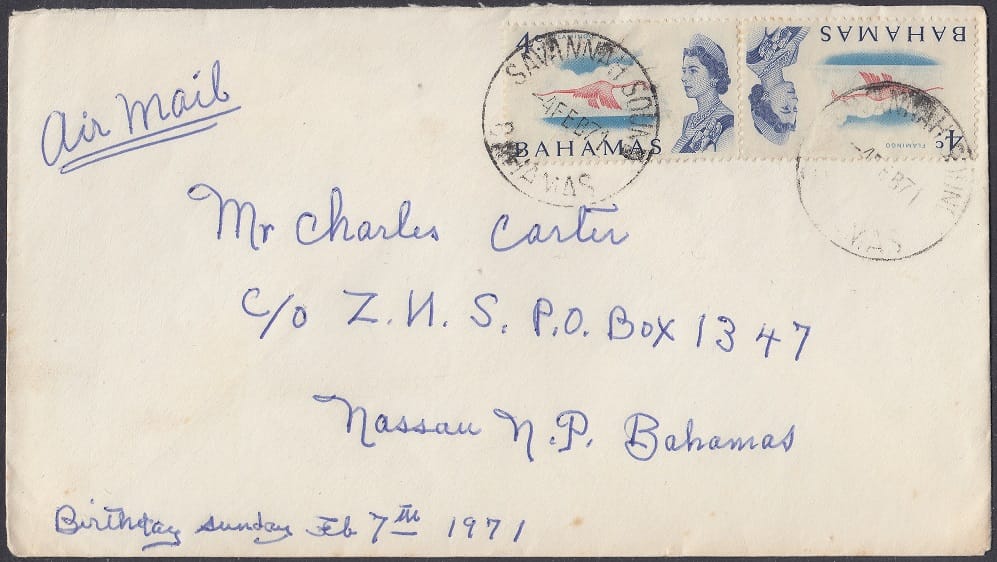 Air Mail
4c
FLAMINGO
BAHAMAS
SAVANNAH SOUND
4 FEB 71
BAHAMAS
BAHAMAS
4c
FLAMINGO
4 FEB 71
Mr Charles Carter
c/o Z.N.S. P.O. Box 1347
Nassau N.P. Bahamas
Birthday sunday Feb 7th 1971